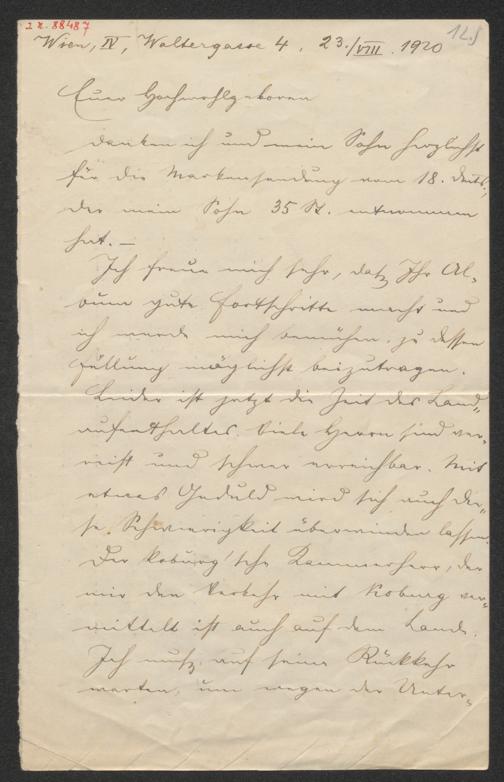 I.N. 88487
12.)
Wien, IV, Waltergasse 4, 23./VIII. 1920
Euer Hochwohlgeboren
danken ich und mein Sohn herzlichst
für die Markensendung vom 18. dies.,
der mein Sohn 35 St. entnommen
hat. —
Ich freue mich sehr, daß Ihr Al-
bum gute Fortschritte macht und
ich werde mich bemühen, zu dessen
Füllung möglichst beizutragen.
Leider ist jetzt die Zeit des Land-
aufenthaltes. Viele Herren sind ver-
reist und schwer erreichbar. Mit
etwas Geduld wird sich auch die-
se Schwierigkeit überwinden lassen.
Der Koburg'sche Kammerherr, der
mir den Verkehr mit Koburg ver-
mittelt ist auch auf dem Lande.
Ich muß auf seine Rückkehr
warten, um wegen der Unter-